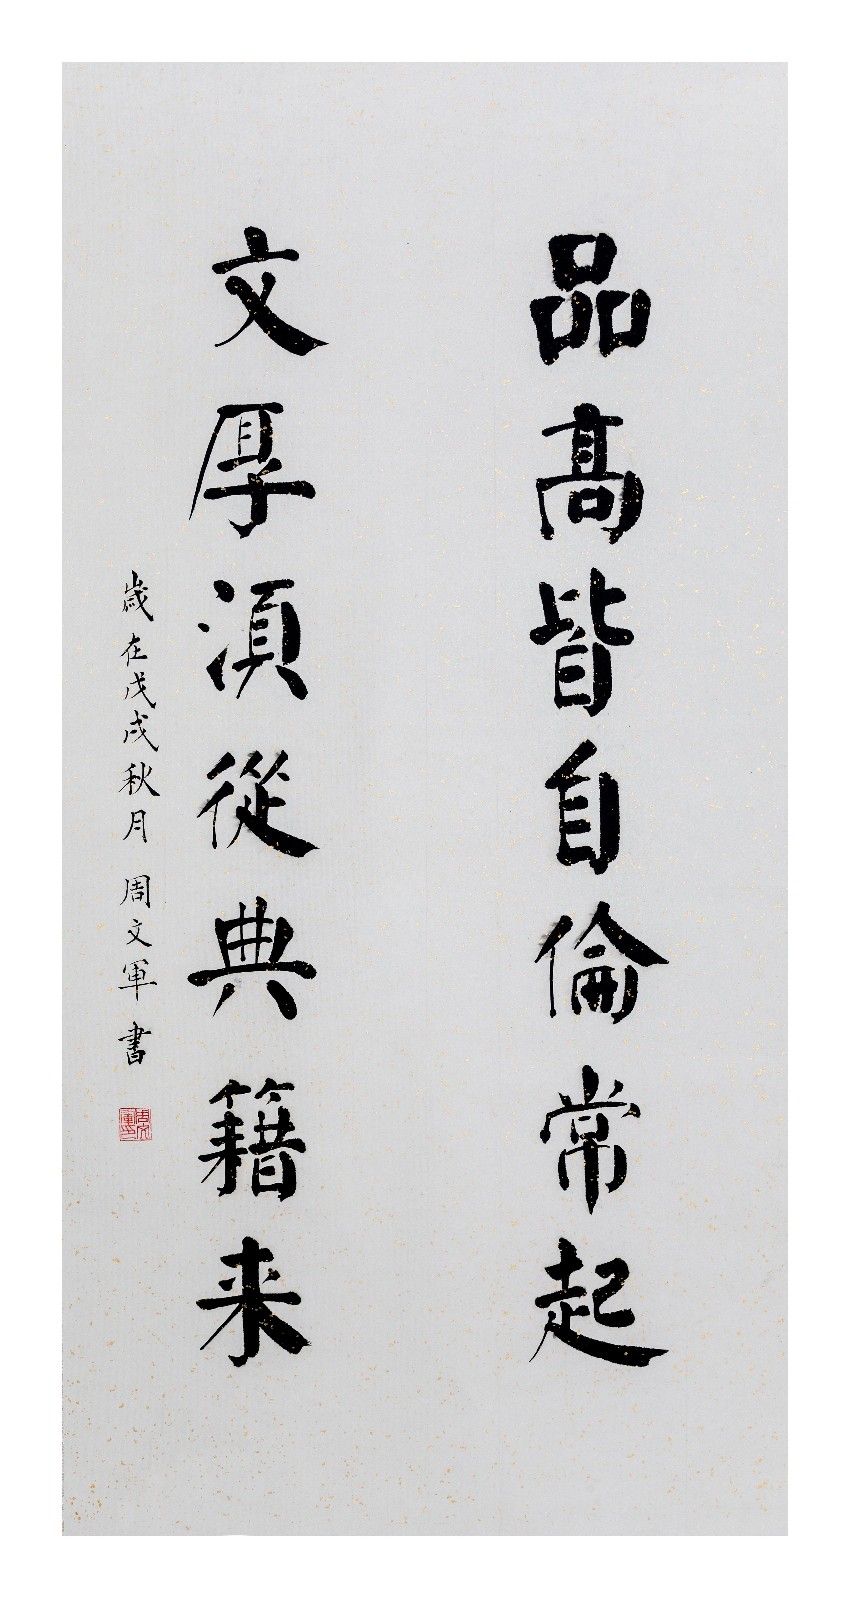 品髙皆自倫常起
文厚須從典籍来
歲在戊戌秋月 周文軍書
周文軍印